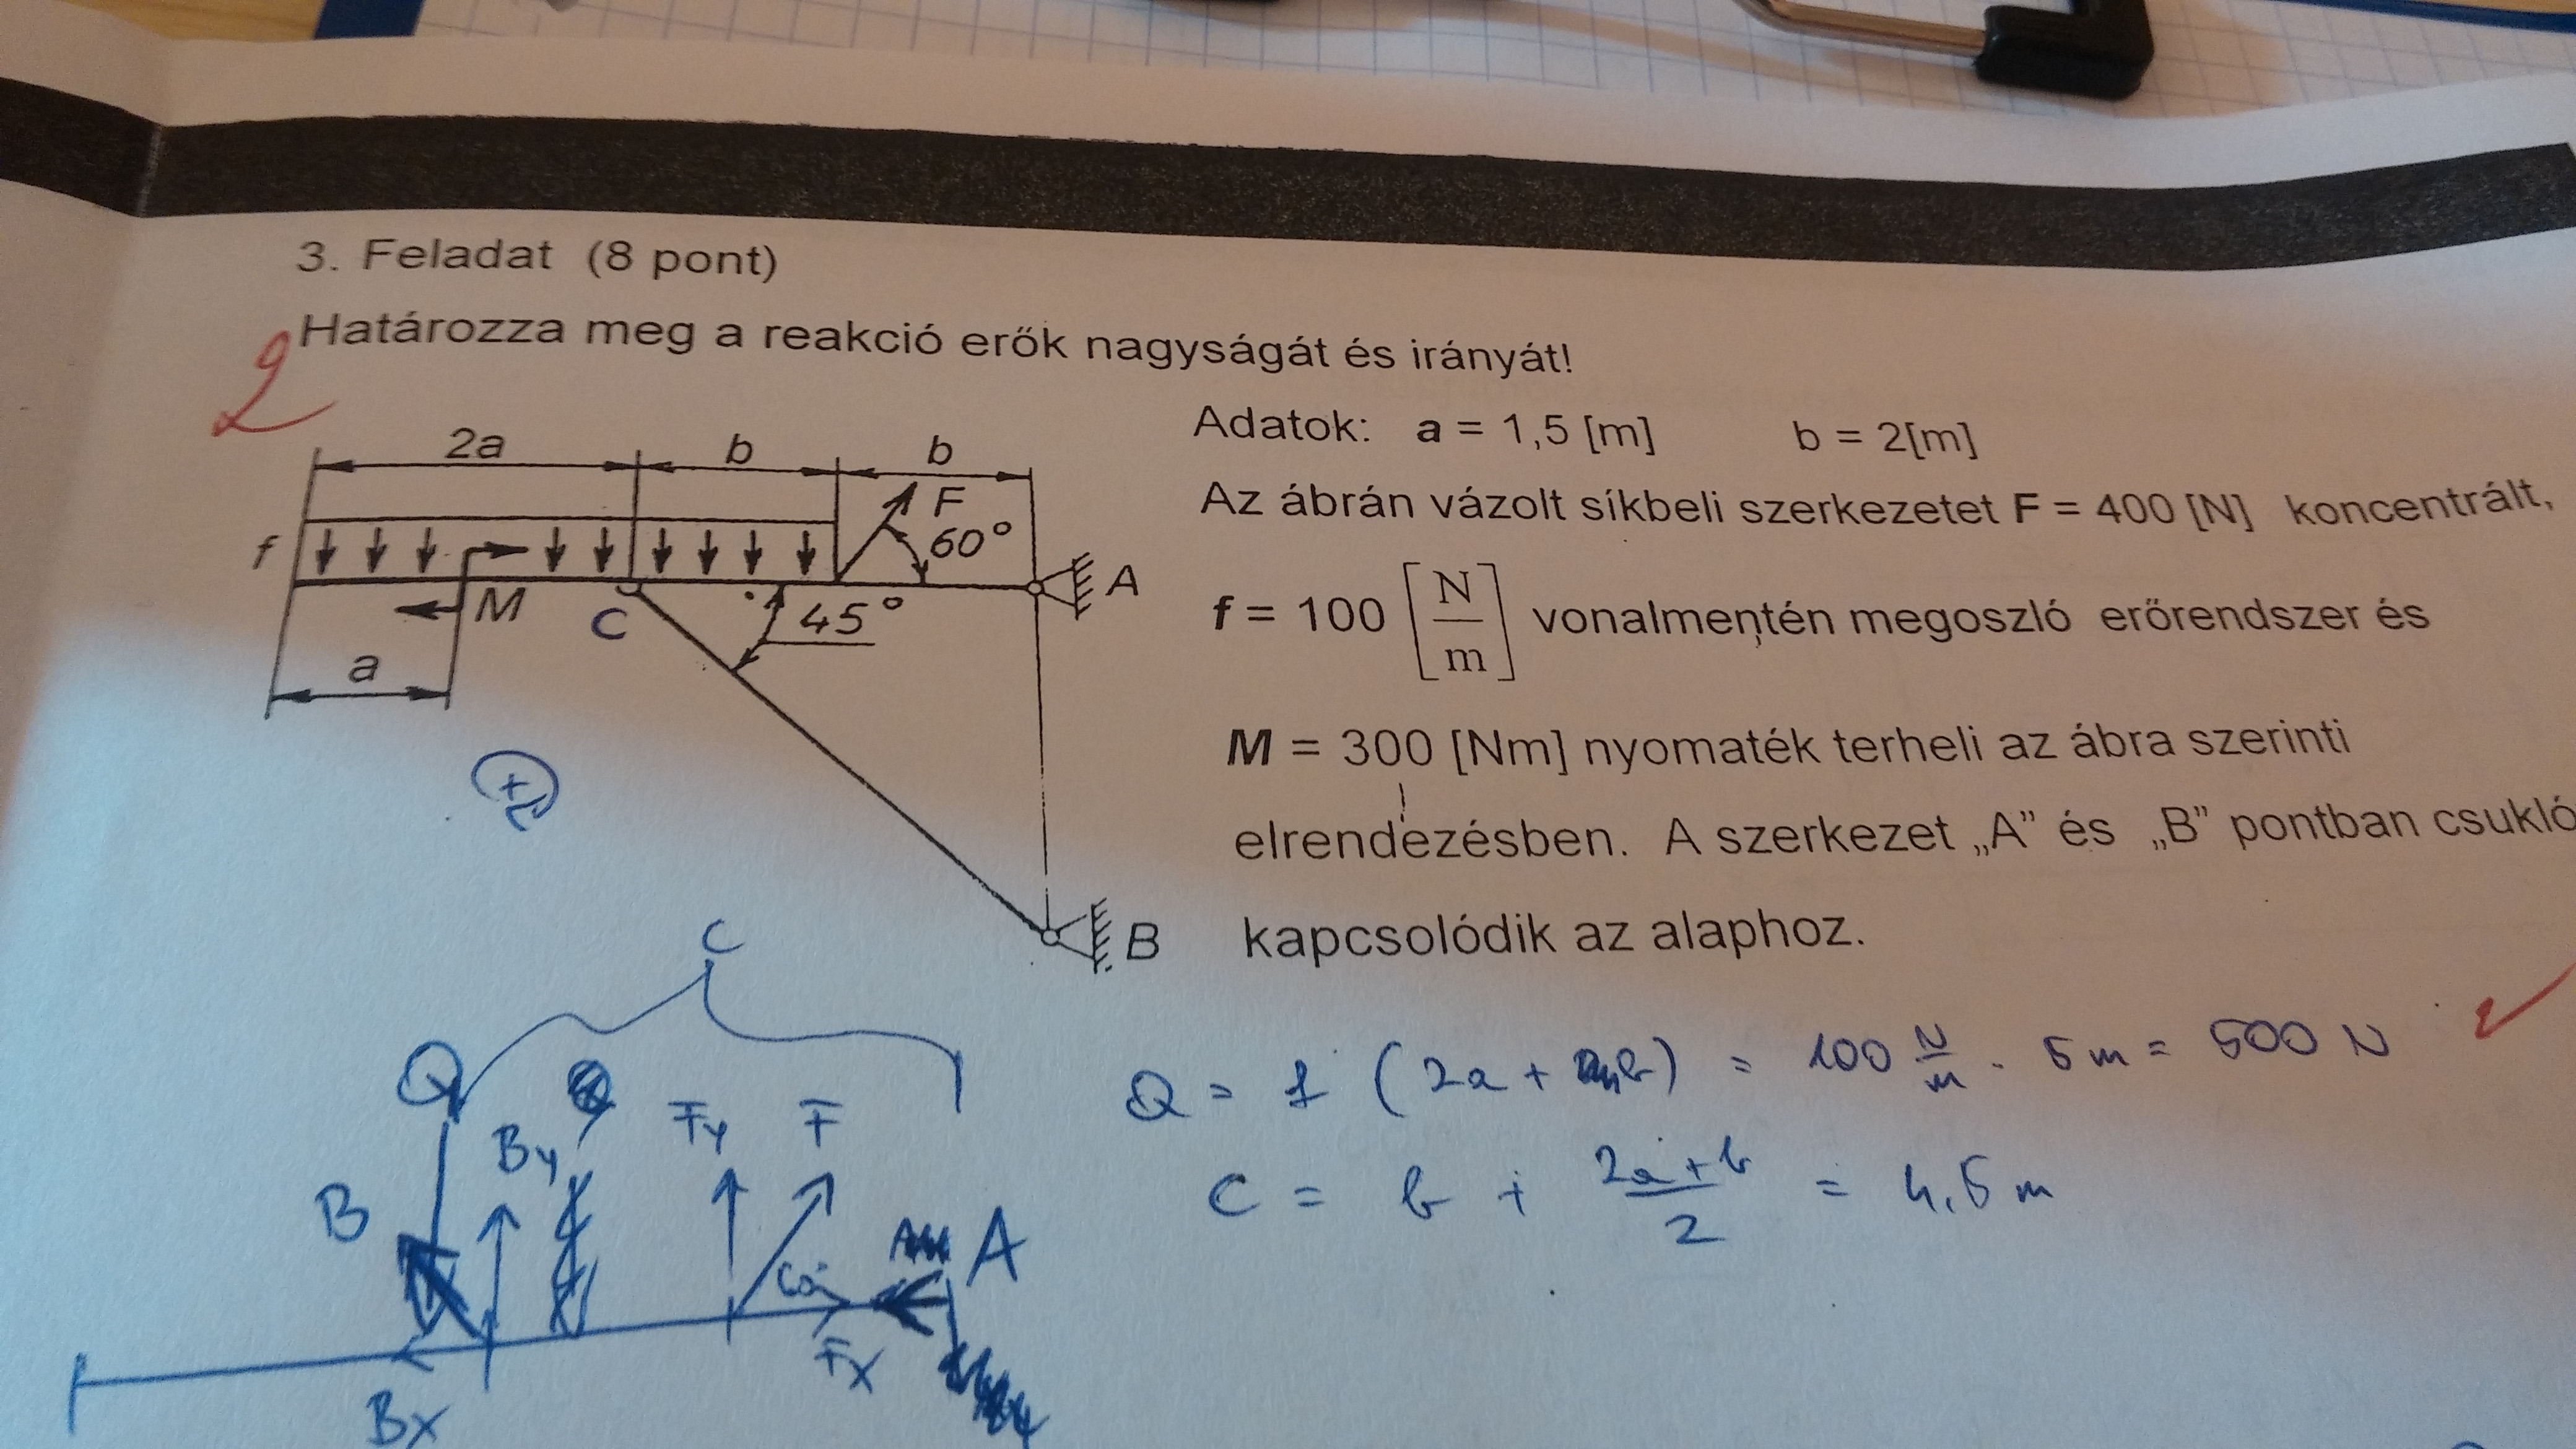 3. Feladat (8 pont)
Határozza meg a reakció erők nagyságát és irányát!
2
Adatok: a = 1,5 [m] b = 2[m]
2a b b
F
60°
f
M
C
45°
A
a
B
Az ábrán vázolt síkbeli szerkezetet F = 400 [N] koncentrált,
f = 100 [N/m] vonalmentén megoszló erőrendszer és
M = 300 [Nm] nyomaték terheli az ábra szerinti
elrendezésben. A szerkezet „A” és „B” pontban csukló
kapcsolódik az alaphoz.
+
C
Q
By Fy F
B
60°
A
Fx
Bx
Q = f (2a + b) = 100 N/m · 5 m = 500 N
C = b + 2a+b/2 = 4,5 m